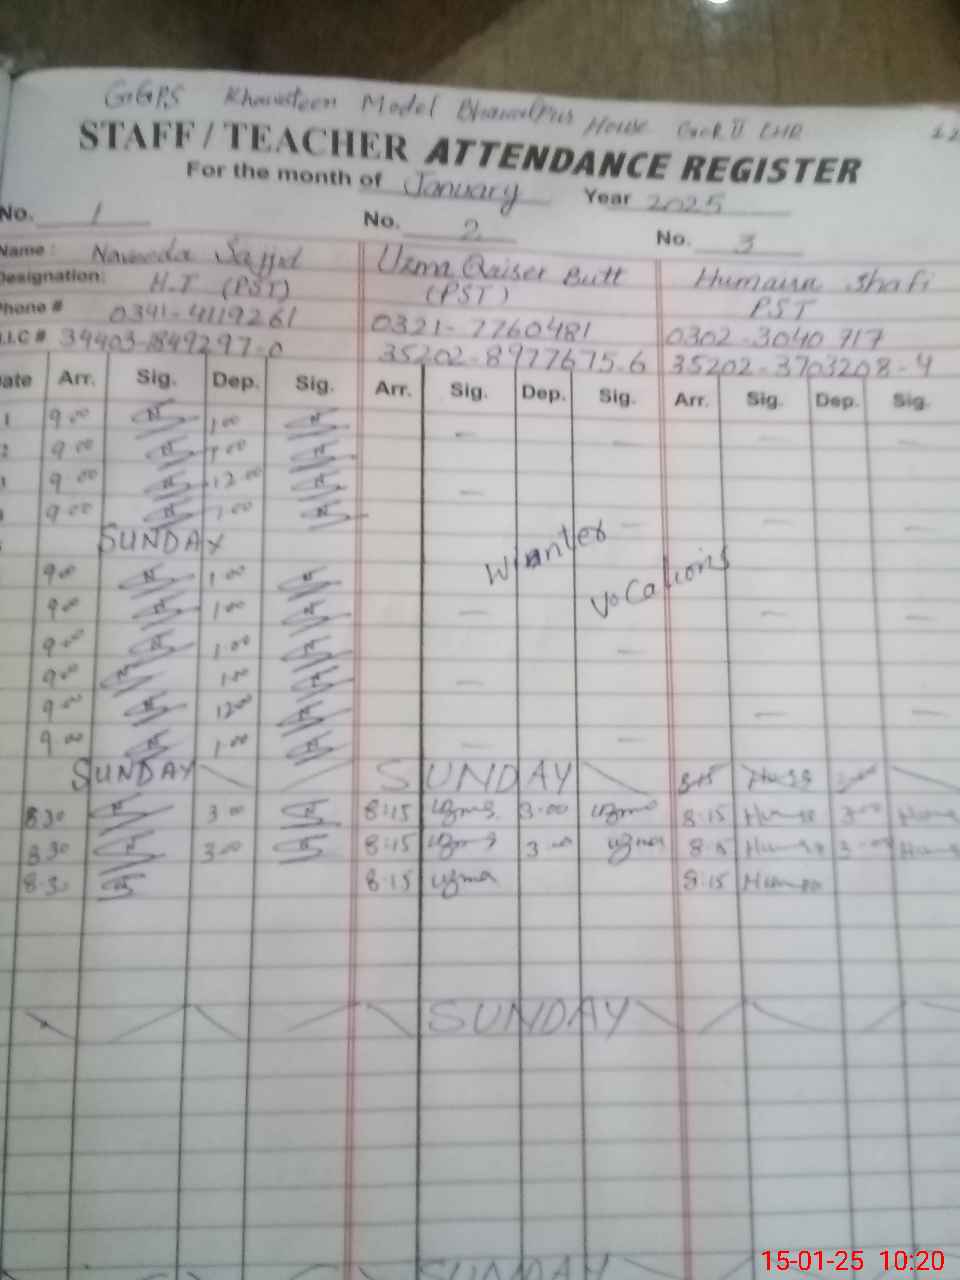 GGPS Khawateen Model Bhawalpur House Gor II LHR
STAFF / TEACHER ATTENDANCE REGISTER
For the month of January Year 2025
No. 1 No. 2 No. 3
Name: Sajjid Uzma Qaiser Butt Humaira Shafi
Designation: H.T (PST) (PST) PST
Phone # 0341-4119261 0321-7760481 0302-3040717
I.C # 35202-8977675-6 35202-3703208-4
Date Arr. Sig. Dep. Sig. Arr. Sig. Dep. Sig. Arr. Sig. Dep. Sig.
1 9.00 1.00
2 9.00 1.00
9.00 12.00
9.00 1.00
SUNDAY
Winter
Vocations
9.00 1.00
9.00 1.00
9.00 1.00
9.00 1.00
9.00 12.00
9.00 1.00
SUNDAY SUNDAY
8.30 3.00 8:15 Uzma 3.00 Uzma 8.15 3.00
8.30 3.00 8:15 Uzma 3.00 Uzma 3.00
8.30 8.15 Uzma 8.15
SUNDAY
SUNDAY
15-01-25 10:20